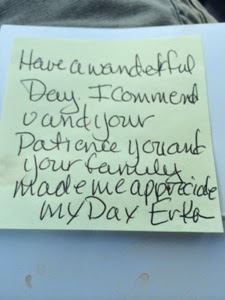 Have a wandekful
Day. I Commend
u and your
Patience you and
your family
made me appriciate
my Day Erka